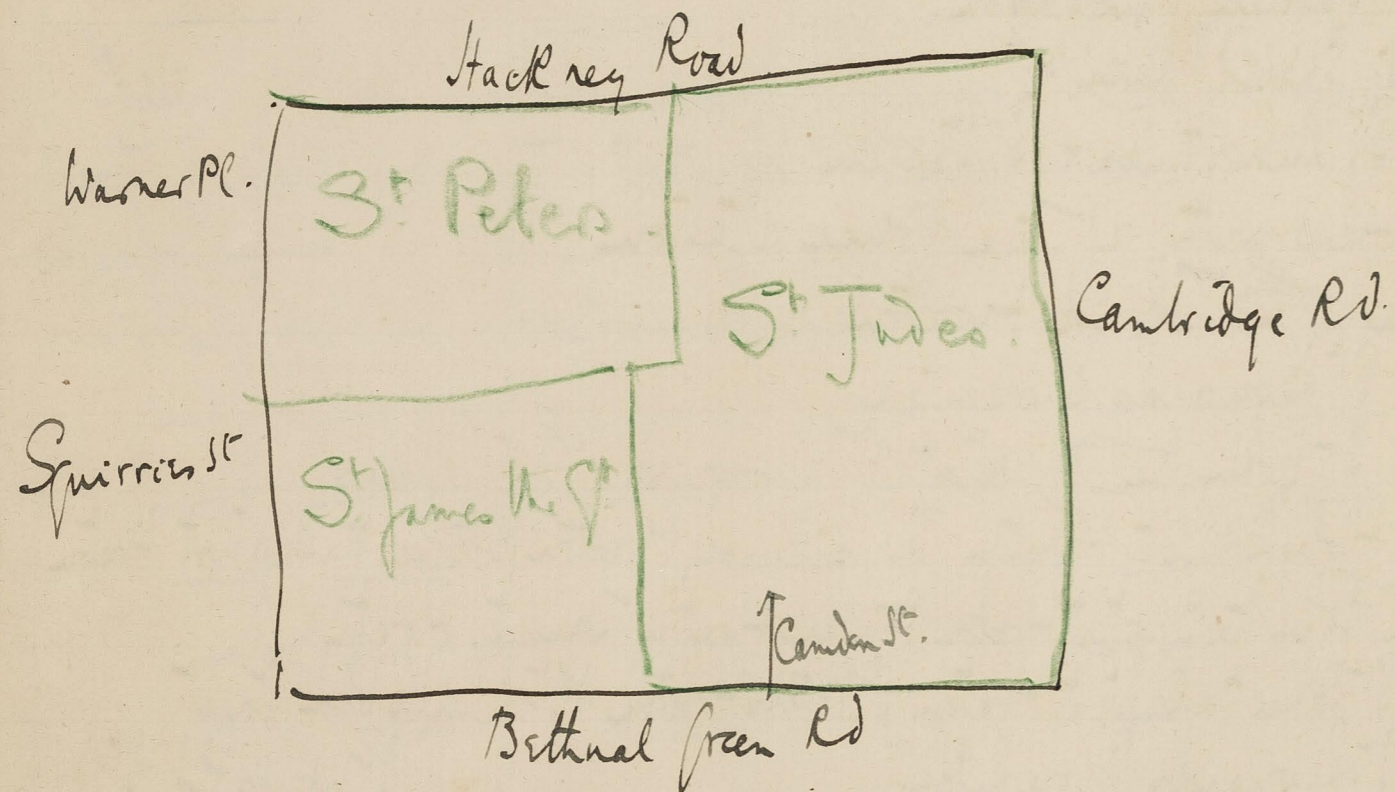 Hackney Road
Warner Pl.
St Peters.
St Judes.
Cambridge Rd.
Squirries St
St James the Gt
Camden St.
Bethnal Green Rd